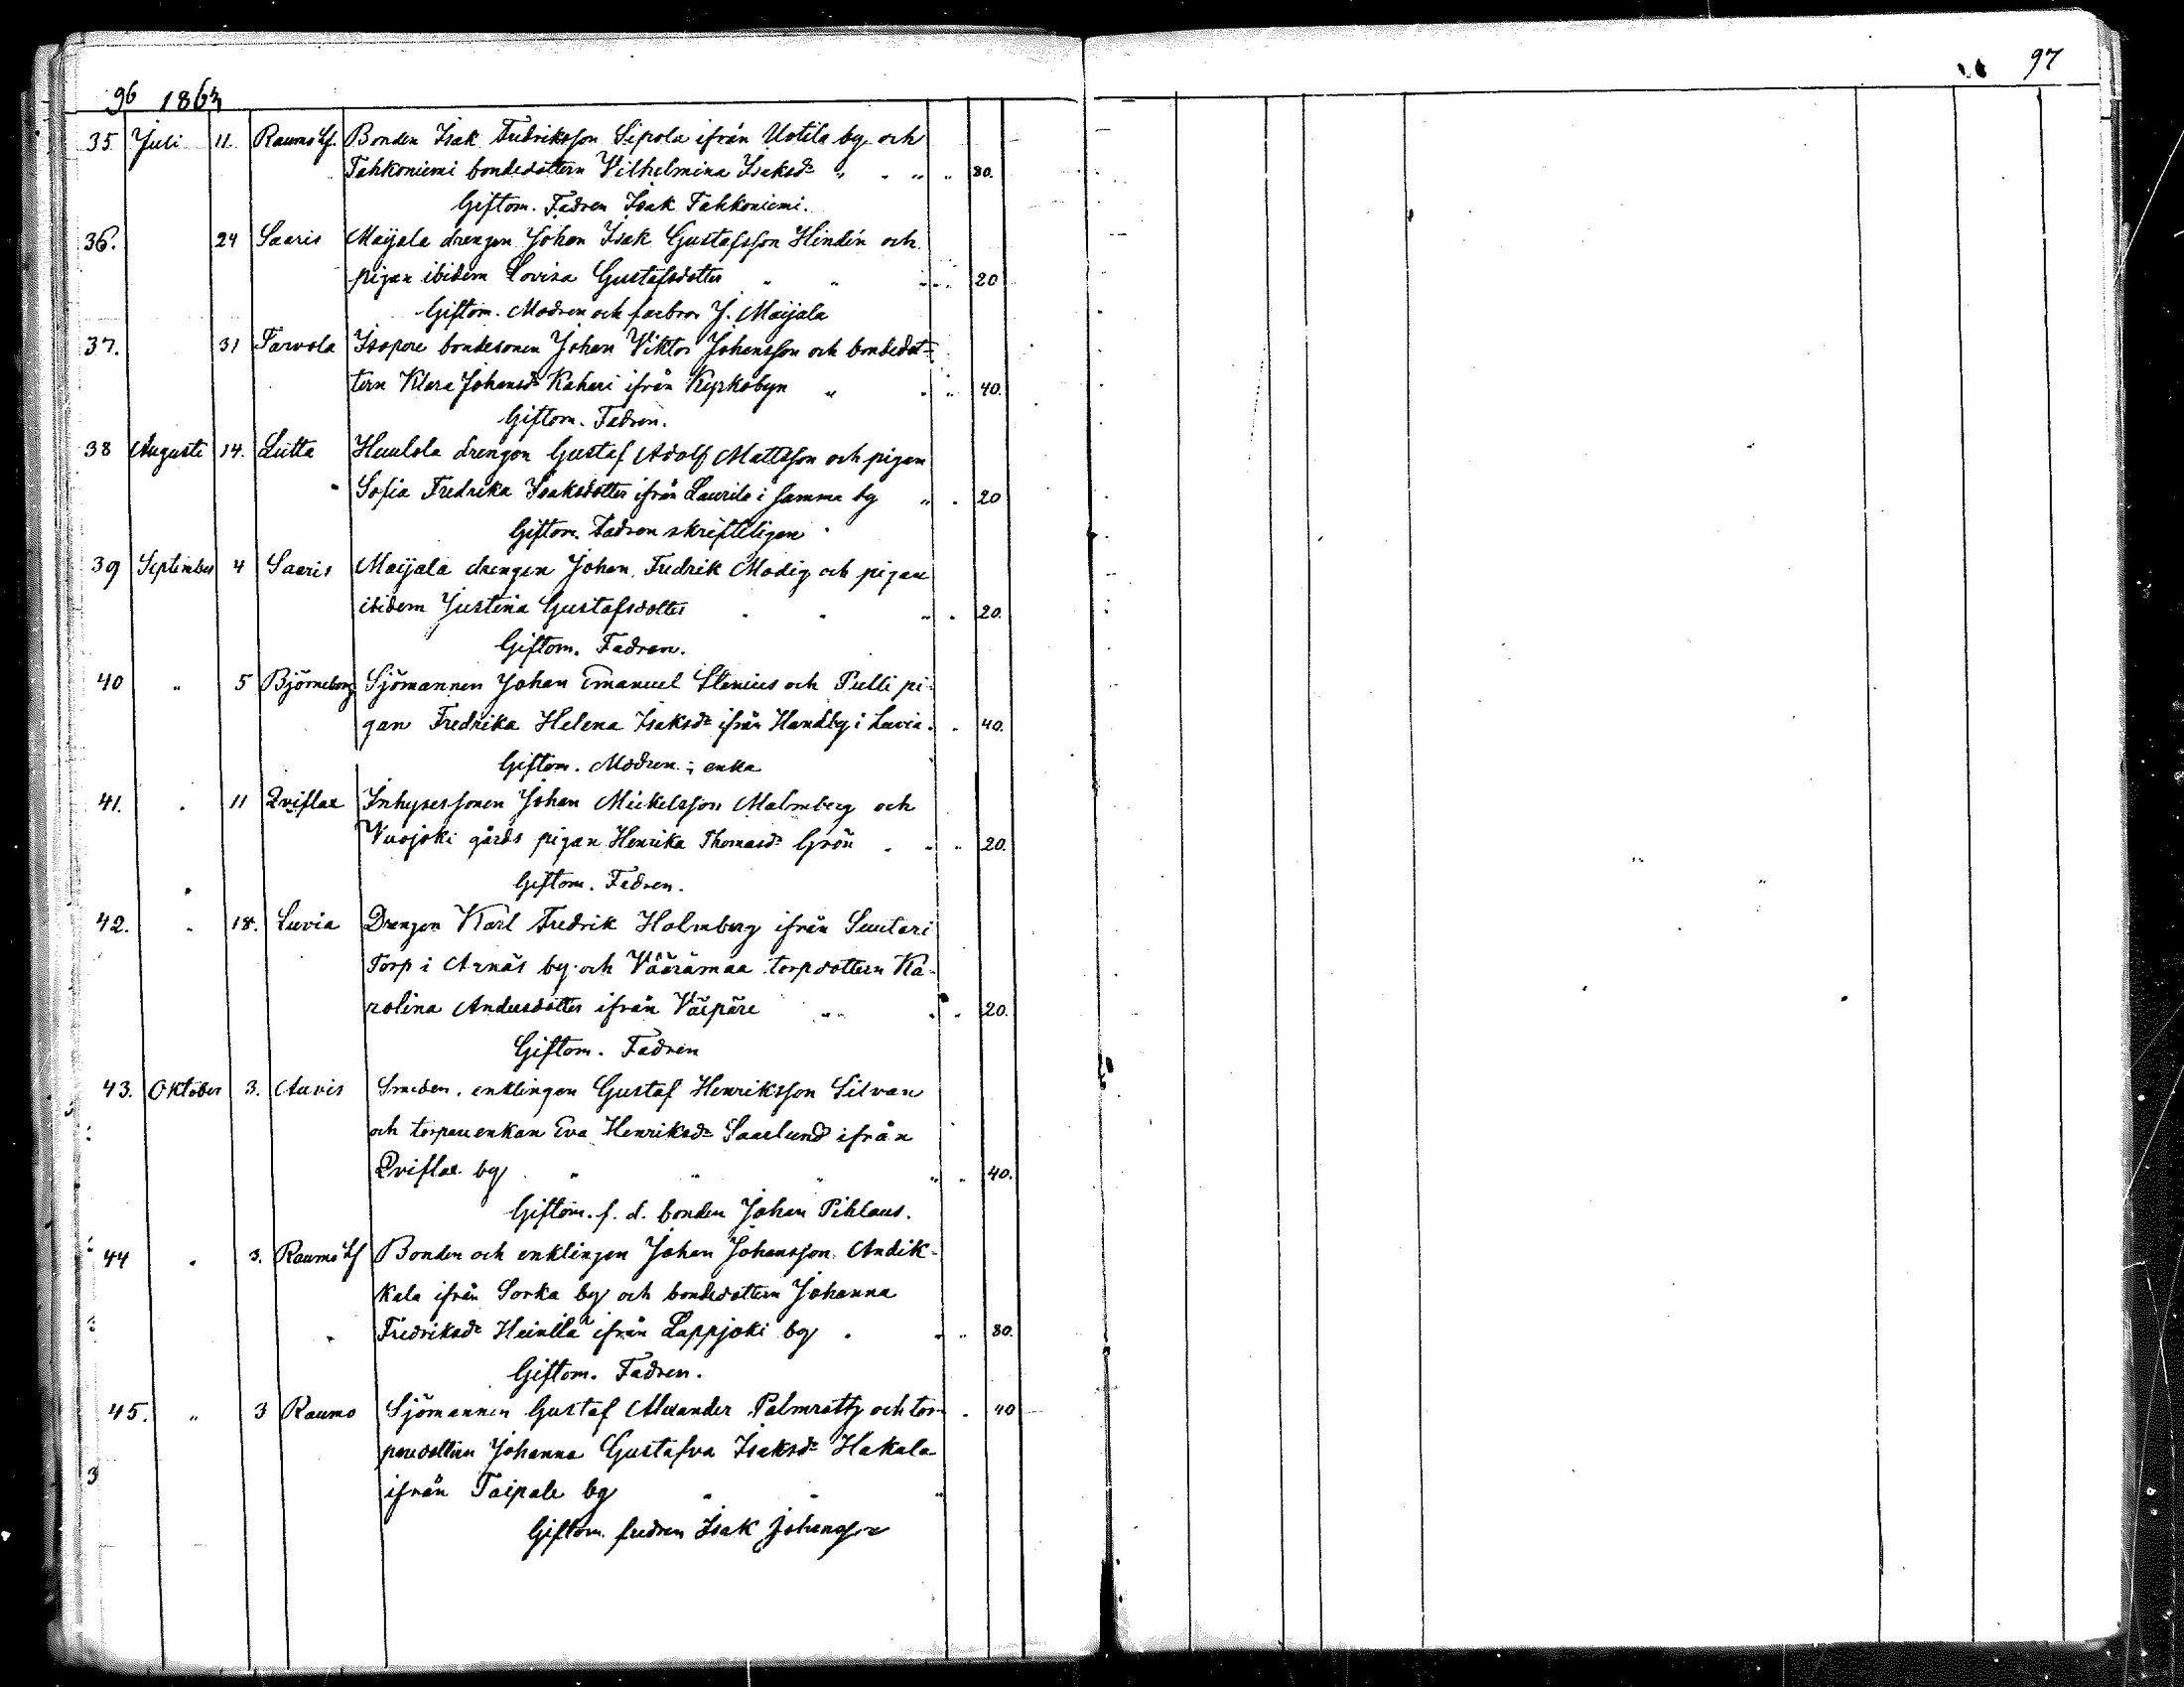 97
96 1863
35 Juli 11. Raumo Lf. Bonden Isak Fredriksson Sipola ifrån Uotila by och
Tahkoniemi bondedottern Vilhelmina Isaksdr " " " " 80.
Giftom. Fadren Isak Tahkoniemi.
36. 24 Saaris Maijala drengen Johan Isak Gustafsson Hindén och
pigan ibidem Lovisa Gustafsdotter " " " " 20
Giftom. Modren och farbror J. Maijala
37. 31 Tarvola Isopere bondesonen Johan Viktor Johansson och bondedot=
tern Klara Johansdr Kahari ifrån Kyrkobyn " " " 40.
Giftom. Fadren.
38 Augusti 14. Lutta Huulola drengen Gustaf Adolf Mattsson och pigan
Sofia Fredrika Isaksdotter ifrån Laurila i samma by " " 20
Giftom. Fadren skrifteligen
39 September 4 Saaris Maijala drengen Johan Fredrik Modig och pigan
ibidem Justina Gustafsdotter " " " " 20.
Giftom. Fadren.
40 " 5 Björneborg Sjömannen Johan Emanuel Stenius och Pulli pi=
gan Fredrika Helena Isaksdr ifrån Hannby i Luvia. " 40.
Giftom. Modren; enka
41. " 11 Qviflax Inhysessonen Johan Mickelsson Malmberg och
Vuojoki gårds pigan Henrika Thomasdr Grön " " " 20.
Giftom. Fadren.
42. " 18. Luvia Drengen Karl Fredrik Holmberg ifrån Suutari
Torp i Arnäs by och Väärämaa torpdottern Ka-
rolina Andersdotter ifrån Väipäre " " " 20.
Giftom. Fadren
43. Oktober 3. Auvis Smeden, enklingen Gustaf Henriksson Silvan
och torpareenkan Eva Henriksdr Saarlund ifrån
Qviflax by " " " " " 40.
Giftom. f. d. bonden Johan Pihlaus.
44 " 3. Raumo Lf Bonden och enklingen Johan Johansson Andik-
kala ifrån Sorka by och bondedottern Johanna
Fredriksdr Heinilä ifrån Lappjoki by " " " 80.
Giftom. Fadren.
45. " 3 Raumo Sjömannen Gustaf Alexander Palmroth och tor- " 40
paredottern Johanna Gustafva Isaksdr Hakala
ifrån Taipale by " " "
Giftom. fadren Isak Johansson